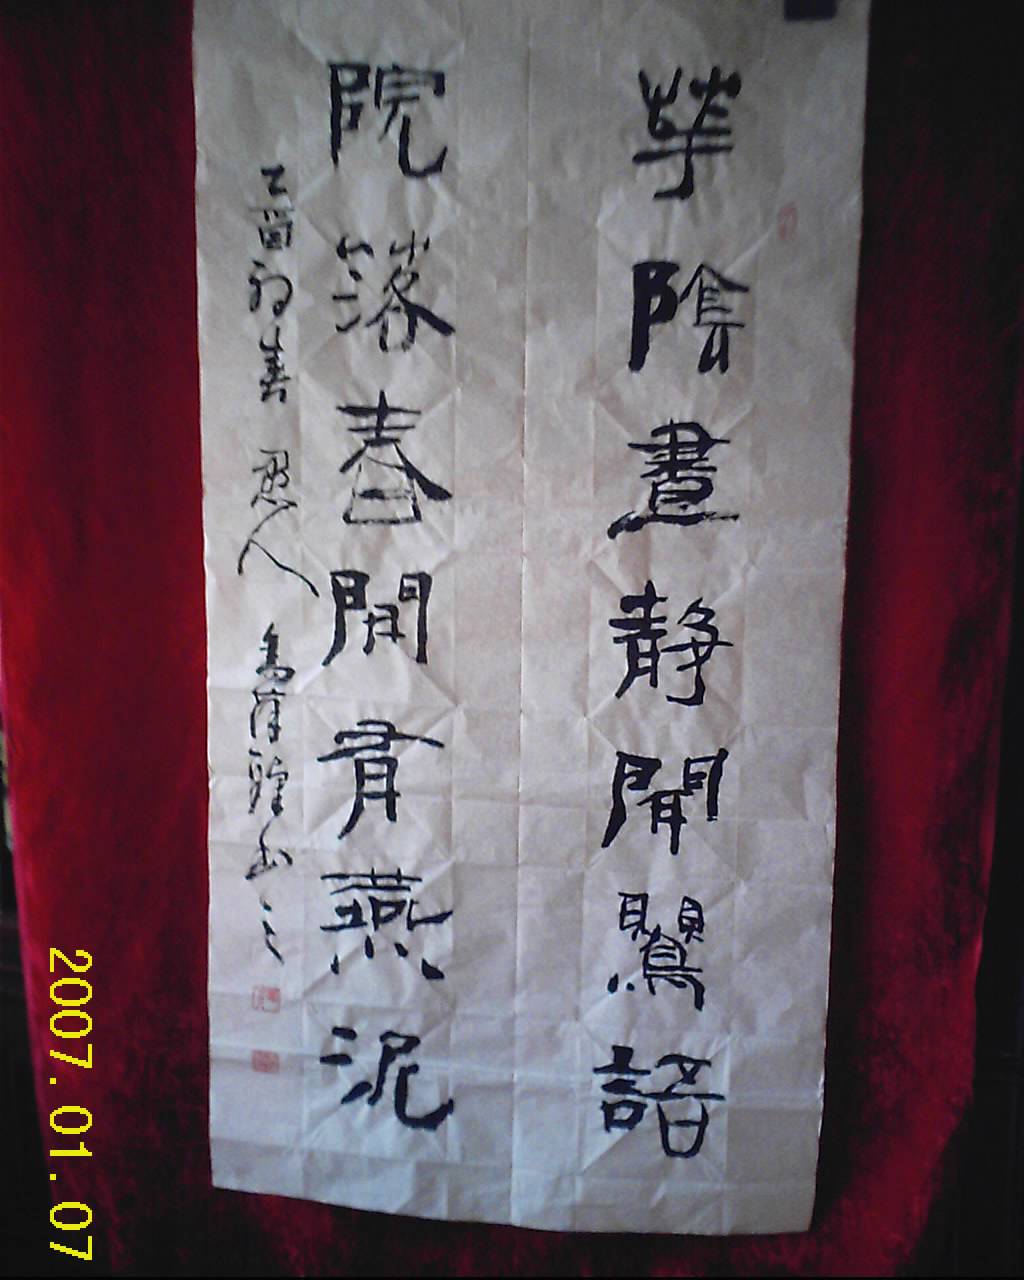 華陰晝靜聞鶯語
院落春開看燕泥
乙酉初春 愚人
書之
2007.01.07